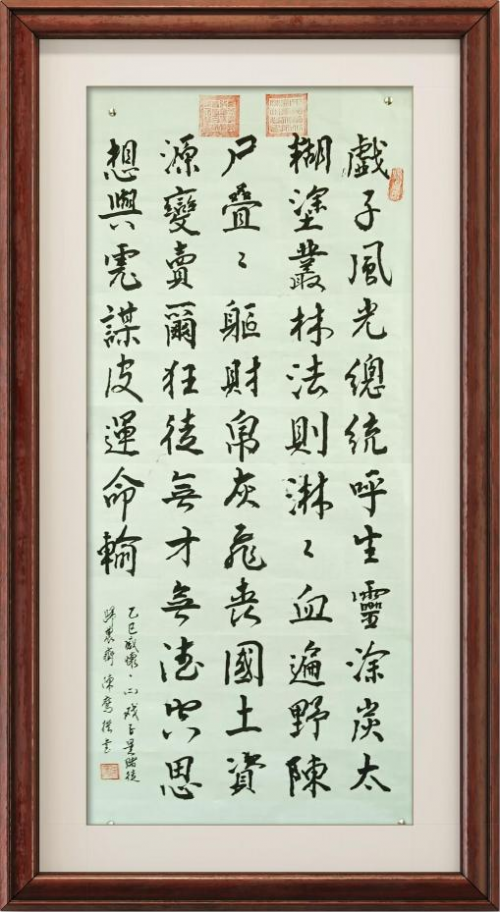 戲子風光總統呼生靈涂炭太
糊塗叢林法則淋〻血遍野陳
尸疊〻軀財帛灰飛喪國土資
源變賣爾狂徒無才無德空思
想與虎謀皮運命輸
乙巳感懷